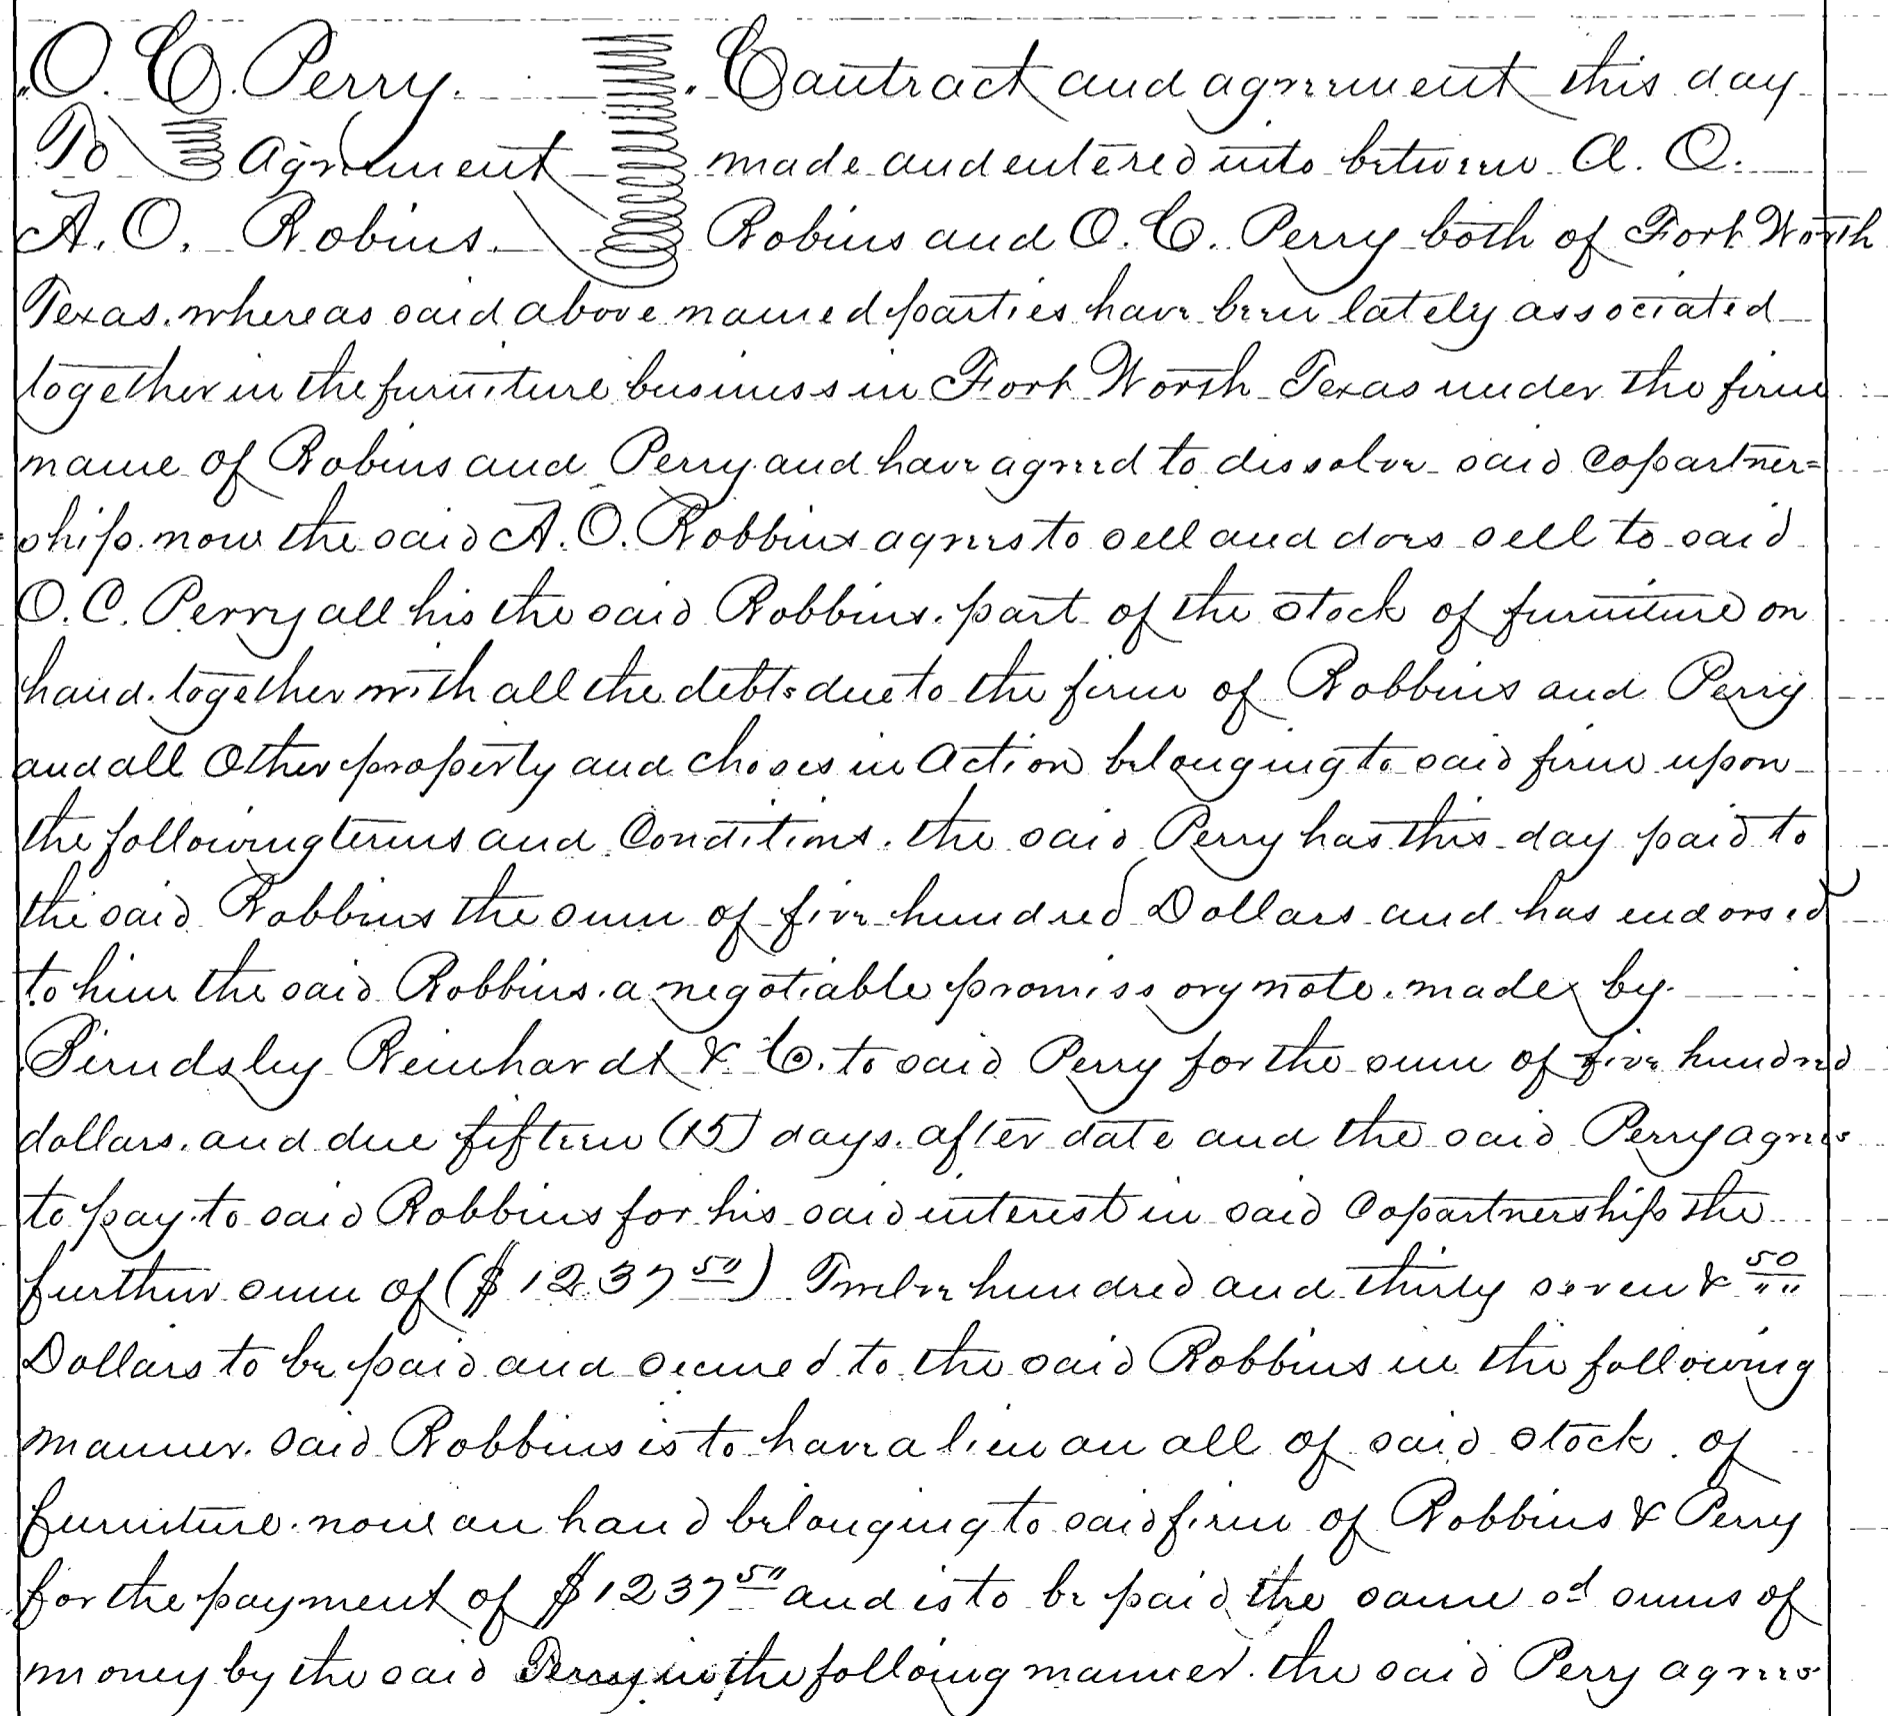 O. C. Perry. Contract and agreement this day
To Agreement made and entered into between A. O.
A. O. Robins. Robins and O. C. Perry both of Fort Worth
Texas. whereas said above named parties have been lately associated
together in the furniture business in Fort Worth Texas under the firm
name of Robins and Perry and have agreed to dissolve said Copartner=
ship. now the said A. O. Robbins agrees to sell and does sell to said
O. C. Perry all his the said Robbins. part of the stock of furniture on
hand. together with all the debts due to the firm of Robbins and Perry
and all Other property and choses in Action belonging to said firm upon
the following terms and Conditions. the said Perry has this day paid to
the said Robbins the sum of five hundred Dollars and has endorsed
to him the said Robbins. a negotiable promissory note. made by
Reinhardt & Co. to said Perry for the sum of five hundred
dollars. and due fifteen (15) days. after date and the said Perry agrees
to pay. to said Robbins for his said interest in said Copartnership the
further sum of ($1237 50) Twelve hundred and thirty seven & 50/""
Dollars to be paid and secured to the said Robbins in the following
manner. Said Robbins is to have a lien on all of said stock. of
furniture. now on hand belonging to said firm of Robbins & Perry
for the payment of $1237 50 and is to be paid the same sd sums of
money by the said Perry in the following manner. the said Perry agrees